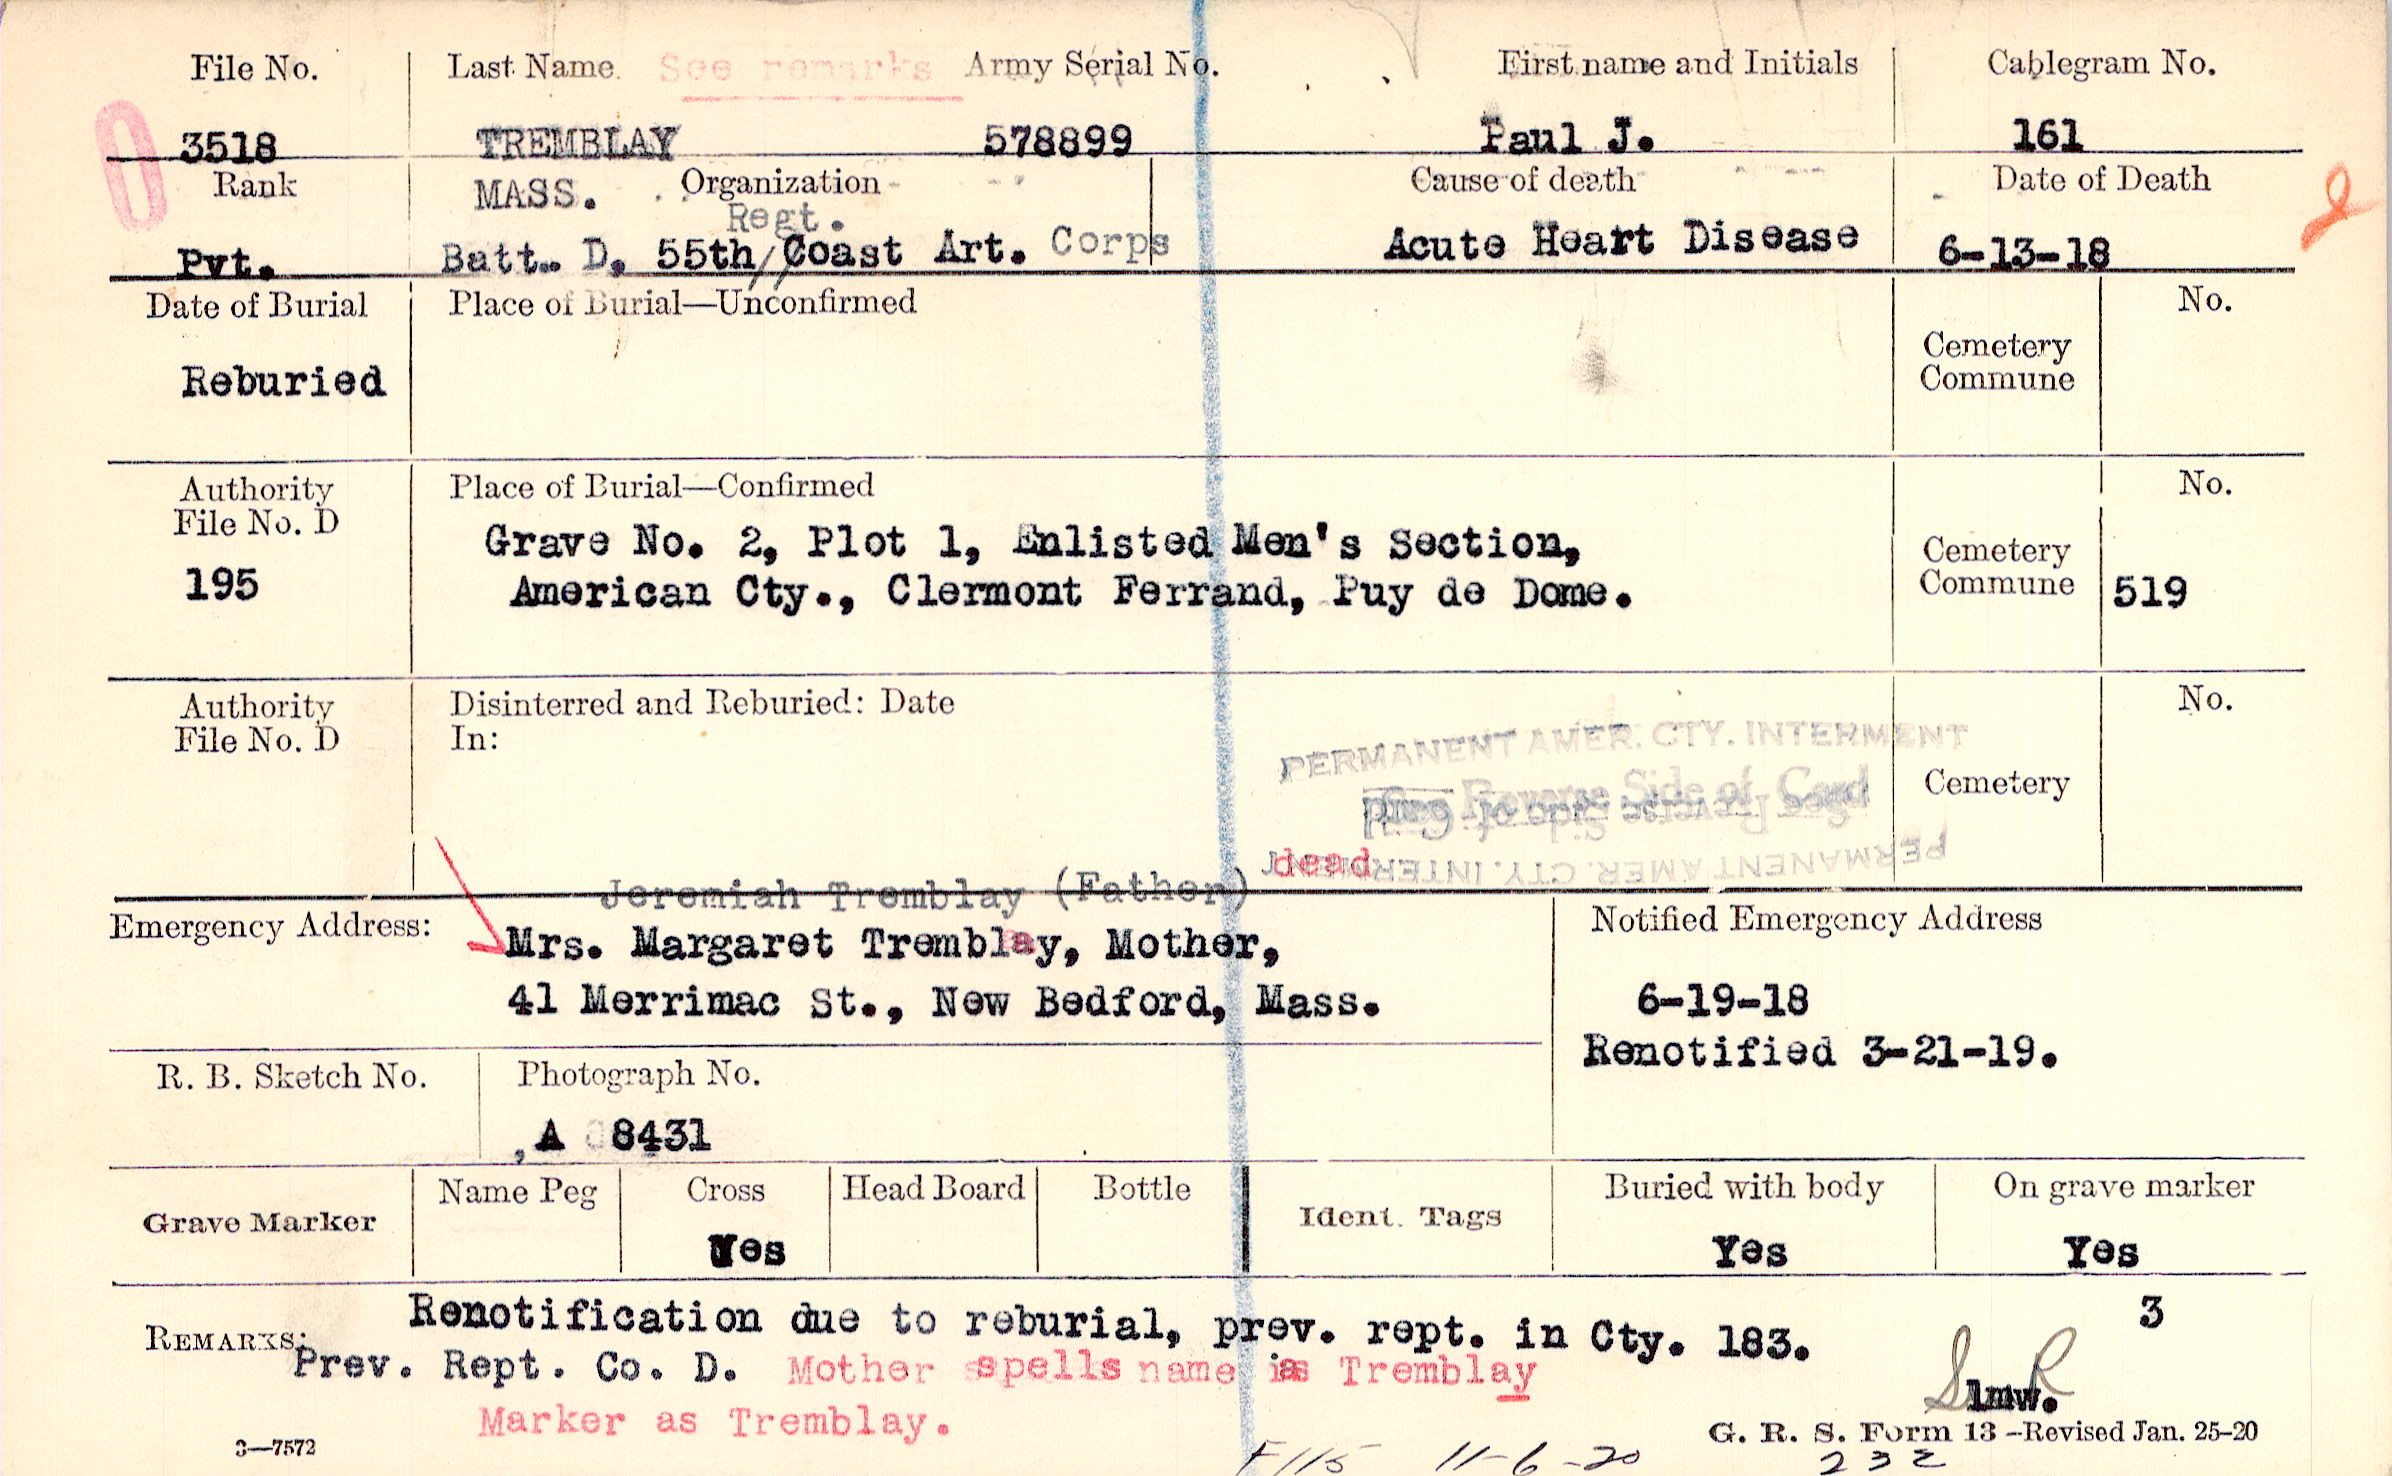 File No. Last Name See remarks Army Serial No. First name and Initials Cablegram No.
3518 TREMBLAY 578899 Paul J. 161
Rank MASS. Organization Cause of death Date of Death
Regt.
Pvt. Batt. D, 55th // Coast Art. Corps Acute Heart Disease 6-13-18
Date of Burial Place of Burial—Unconfirmed No.
Reburied Cemetery
Commune
Authority Place of Burial—Confirmed No.
File No. D Grave No. 2, Plot 1, Enlisted Men's Section, Cemetery
195 American Cty., Clermont Ferrand, Puy de Dome. Commune 519
Authority Disinterred and Reburied: Date No.
File No. D In:
PERMANENT AMER. CTY. INTERMENT
See Reverse Side of Card Cemetery
See Reverse Side of Card
PERMANENT AMER. CTY. INTERMENT
Jeremiah Tremblay (Father) dead
Emergency Address: Mrs. Margaret Tremblay, Mother, Notified Emergency Address
41 Merrimac St., New Bedford, Mass. 6-19-18
Renotified 3-21-19.
R. B. Sketch No. Photograph No.
A 8431
Grave Marker Name Peg Cross Head Board Bottle Ident. Tags Buried with body On grave marker
Yes Yes Yes
REMARKS: Renotification due to reburial, prev. rept. in Cty. 183. 3
Prev. Rept. Co. D. Mother spells name as Tremblay
lmw.
Marker as Tremblay.
3—7572 G. R. S. Form 13 -Revised Jan. 25-20
11-6-20 232